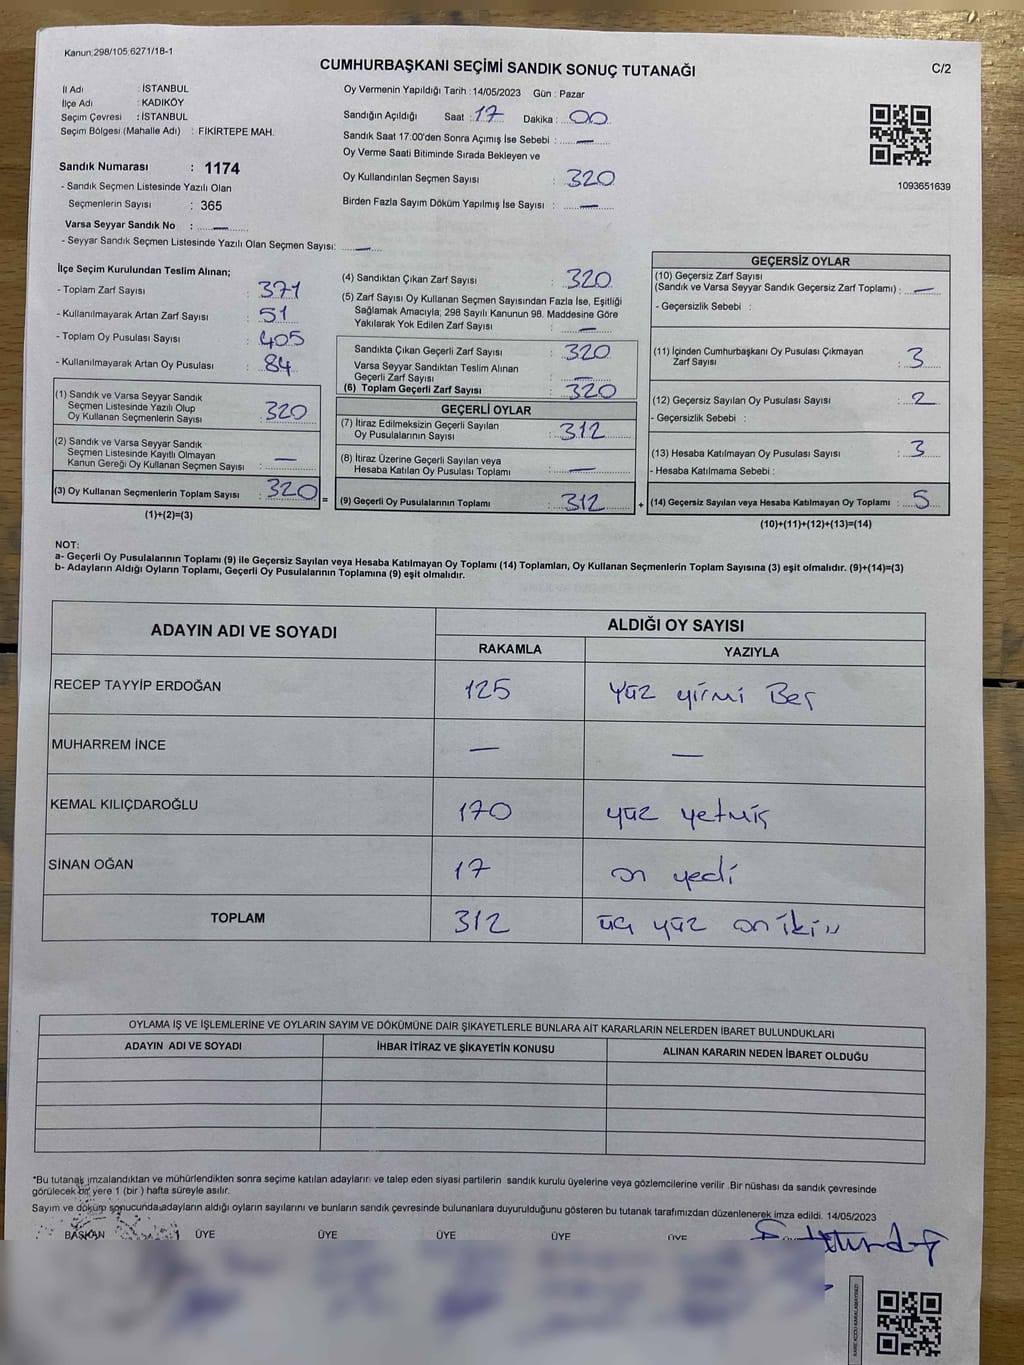 Kanun:298/105,6271/18-1
CUMHURBAŞKANI SEÇİMİ SANDIK SONUÇ TUTANAĞI
C/2
İl Adı : İSTANBUL
İlçe Adı : KADIKÖY
Seçim Çevresi : İSTANBUL
Seçim Bölgesi (Mahalle Adı) : FİKİRTEPE MAH.
Oy Vermenin Yapıldığı Tarih : 14/05/2023 Gün : Pazar
Sandığın Açıldığı Saat : 17 Dakika : 00
Sandık Saat 17:00'den Sonra Açımış İse Sebebi : —
Oy Verme Saati Bitiminde Sırada Bekleyen ve
Oy Kullandırılan Seçmen Sayısı : 320
Birden Fazla Sayım Döküm Yapılmış İse Sayısı : —
1093651639
Sandık Numarası : 1174
- Sandık Seçmen Listesinde Yazılı Olan
Seçmenlerin Sayısı : 365
Varsa Seyyar Sandık No : —
- Seyyar Sandık Seçmen Listesinde Yazılı Olan Seçmen Sayısı: —
İlçe Seçim Kurulundan Teslim Alınan;
- Toplam Zarf Sayısı : 371
- Kullanılmayarak Artan Zarf Sayısı : 51
- Toplam Oy Pusulası Sayısı : 405
- Kullanılmayarak Artan Oy Pusulası : 84
(1) Sandık ve Varsa Seyyar Sandık
Seçmen Listesinde Yazılı Olup
Oy Kullanan Seçmenlerin Sayısı : 320
(2) Sandık ve Varsa Seyyar Sandık
Seçmen Listesinde Kayıtlı Olmayan
Kanun Gereği Oy Kullanan Seçmen Sayısı : —
(3) Oy Kullanan Seçmenlerin Toplam Sayısı : 320 =
(1)+(2)=(3)
(4) Sandıktan Çıkan Zarf Sayısı : 320
(5) Zarf Sayısı Oy Kullanan Seçmen Sayısından Fazla İse, Eşitliği
Sağlamak Amacıyla; 298 Sayılı Kanunun 98. Maddesine Göre
Yakılarak Yok Edilen Zarf Sayısı : —
Sandıkta Çıkan Geçerli Zarf Sayısı : 320
Varsa Seyyar Sandıktan Teslim Alınan
Geçerli Zarf Sayısı : —
(6) Toplam Geçerli Zarf Sayısı : 320
GEÇERLİ OYLAR
(7) İtiraz Edilmeksizin Geçerli Sayılan
Oy Pusulalarının Sayısı : 312
(8) İtiraz Üzerine Geçerli Sayılan veya
Hesaba Katılan Oy Pusulası Toplamı : —
(9) Geçerli Oy Pusulalarının Toplamı : 312 +
GEÇERSİZ OYLAR
(10) Geçersiz Zarf Sayısı
(Sandık ve Varsa Seyyar Sandık Geçersiz Zarf Toplamı) : —
- Geçersizlik Sebebi :
(11) İçinden Cumhurbaşkanı Oy Pusulası Çıkmayan
Zarf Sayısı : 3
(12) Geçersiz Sayılan Oy Pusulası Sayısı : 2
- Geçersizlik Sebebi :
(13) Hesaba Katılmayan Oy Pusulası Sayısı : 3
- Hesaba Katılmama Sebebi :
(14) Geçersiz Sayılan veya Hesaba Katılmayan Oy Toplamı : 5
(10)+(11)+(12)+(13)=(14)
NOT:
a- Geçerli Oy Pusulalarının Toplamı (9) ile Geçersiz Sayılan veya Hesaba Katılmayan Oy Toplamı (14) Toplamları, Oy Kullanan Seçmenlerin Toplam Sayısına (3) eşit olmalıdır. (9)+(14)=(3)
b- Adayların Aldığı Oyların Toplamı, Geçerli Oy Pusulalarının Toplamına (9) eşit olmalıdır.
ADAYIN ADI VE SOYADI
ALDIĞI OY SAYISI
RAKAMLA YAZIYLA
RECEP TAYYİP ERDOĞAN 125 yüz yirmi Beş
MUHARREM İNCE — —
KEMAL KILIÇDAROĞLU 170 yüz yetmiş
SİNAN OĞAN 17 on yedi
TOPLAM 312 üç yüz oniki
OYLAMA İŞ VE İŞLEMLERİNE VE OYLARIN SAYIM VE DÖKÜMÜNE DAİR ŞİKAYETLERLE BUNLARA AİT KARARLARIN NELERDEN İBARET BULUNDUKLARI
ADAYIN ADI VE SOYADI İHBAR İTİRAZ VE ŞİKAYETİN KONUSU ALINAN KARARIN NEDEN İBARET OLDUĞU
*Bu tutanak imzalandıktan ve mühürlendikten sonra seçime katılan adayların ve talep eden siyasi partilerin sandık kurulu üyelerine veya gözlemcilerine verilir .Bir nüshası da sandık çevresinde
görülecek bir yere 1 (bir ) hafta süreyle asılır.
Sayım ve döküm sonucunda adayların aldığı oyların sayılarını ve bunların sandık çevresinde bulunanlara duyurulduğunu gösteren bu tutanak tarafımızdan düzenlenerek imza edildi. 14/05/2023
BAŞKAN ÜYE ÜYE ÜYE ÜYE ÜYE